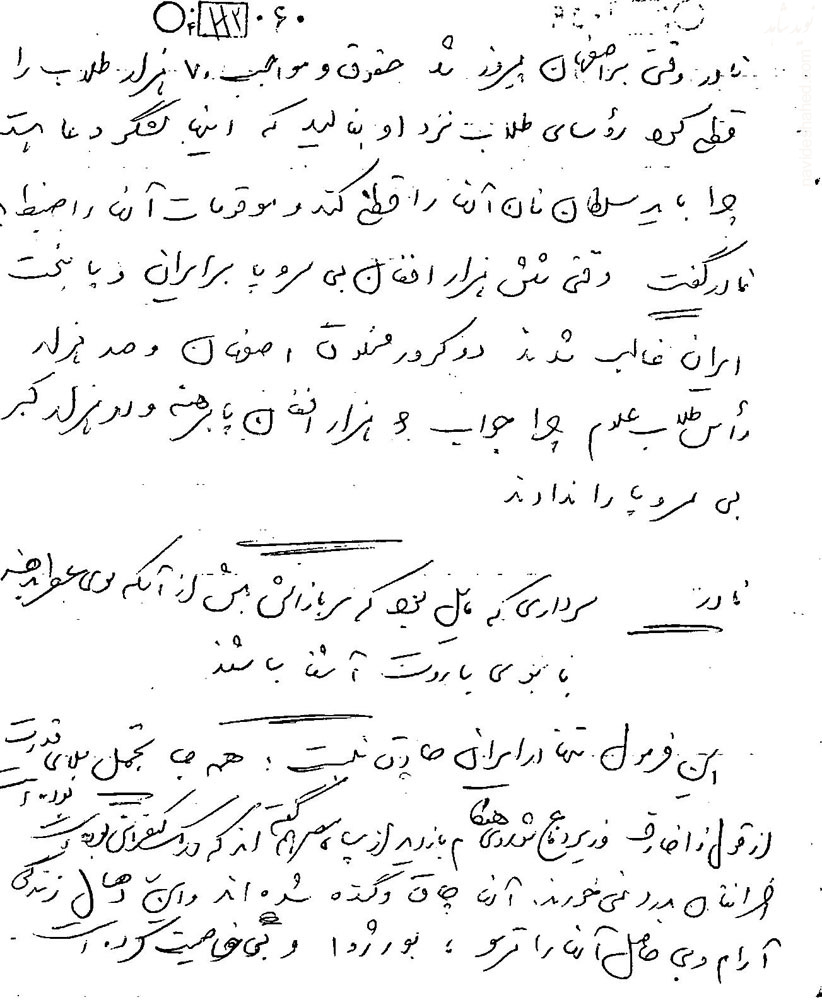 نادر وقتی بر اصفهان پیروز شد حقوق و مواجب ۷۰ هزار طلاب را
قطع کرد رؤسای طلاب نزد او بنالید که اینها لشگر دعا هستند
چرا باید سلطان نان آنها را قطع کند و موقوفات آنها را ضبط
نادر گفت وقتی شش هزار افغان بی سر و پا بر ایران و پایتخت
ایران غالب شدند دو کرور مخلوق اصفهان و صد هزار
رأس طلاب علوم چرا جواب ۶ هزار افغان پا برهنه و دو هزار گبر
بی سر و پا را ندادند
نادر سرداری که مایل نبود که سربازانش بیش از آنکه بوی عطر بدهند
با بوی باروت آشنا باشند
این فرمول تنها در ایران صادق نیست ؛ همه جا تجمل بلای قدرت
بوده است
از قول وزیر دفاع شوروی هنگام بازدید از مصر گفته اند که در
افسرانتان بدرد نمی‌خورند. آنها چاق و گنده شده اند و این زندگی
آرام و بی حاصل آنها را ترسو ؛ بورژوا و بی خاصیت کرده است.